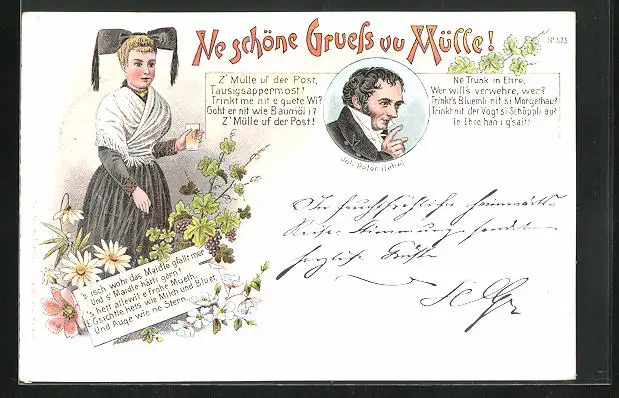 Ne schöne Gruess vu Mülle!
No 573
Z' Mülle uf der Post,
Tausigsappermost!
Trinkt me nit e guete Wi?
Goht er nit wie Baumöl i?
Z' Mülle uf der Post!
Joh. Peter Hebel
Ne Trunk in Ehre,
Wer will's verwehre, wer?
Trinkt's Blüemli nit si Morgethau?
Trinkt nit der Vogt si Schöppli au?
In Ehre han i g'sait!
In feuchtfröhlicher heimwärts-
Reise-Stimmung sendet
herzliche Grüße
's isch wohr das Maidle gfallt mer
Und s' Maidle hätti gern!
's hett allewil e frohe Mueth,
E G'sichtle hets wie Milch und Bluet
Und Auge wie ne Stern.